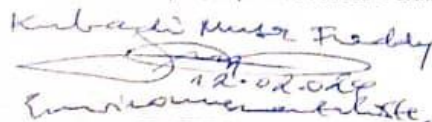 Kubagli Musa Freddy
12.02.020
Environnementaliste.